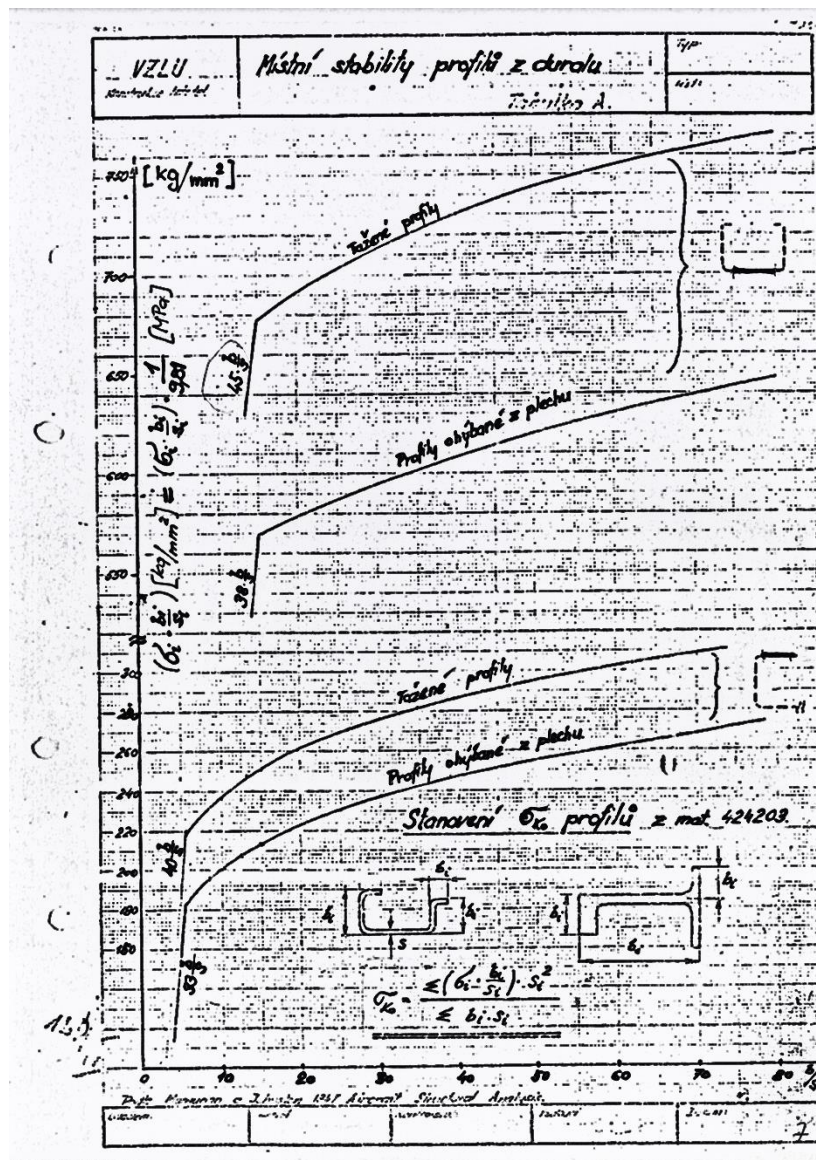 VZLU
Místní stability profilů z duralu
Typ:
Tabulka A.
[kg/mm²]
750
700
650
600
550
300
280
260
240
220
200
190
180
(σi · bi/si) [kg/mm²] = (σi · bi/si) · 1/9,81 [MPa]
Tažené profily
45 b/s
Profily ohýbané z plechu
38 b/s
Tažené profily
Profily ohýbané z plechu
40 b/s
Stanovení σKo profilů z mat. 424203
bi
bi
bi
s
bi
bi
bi
σKo = Σ(σi · bi/si) · si² / Σ bi · si
0 10 20 30 40 50 60 70 80
Aircraft Structural Analysis
7